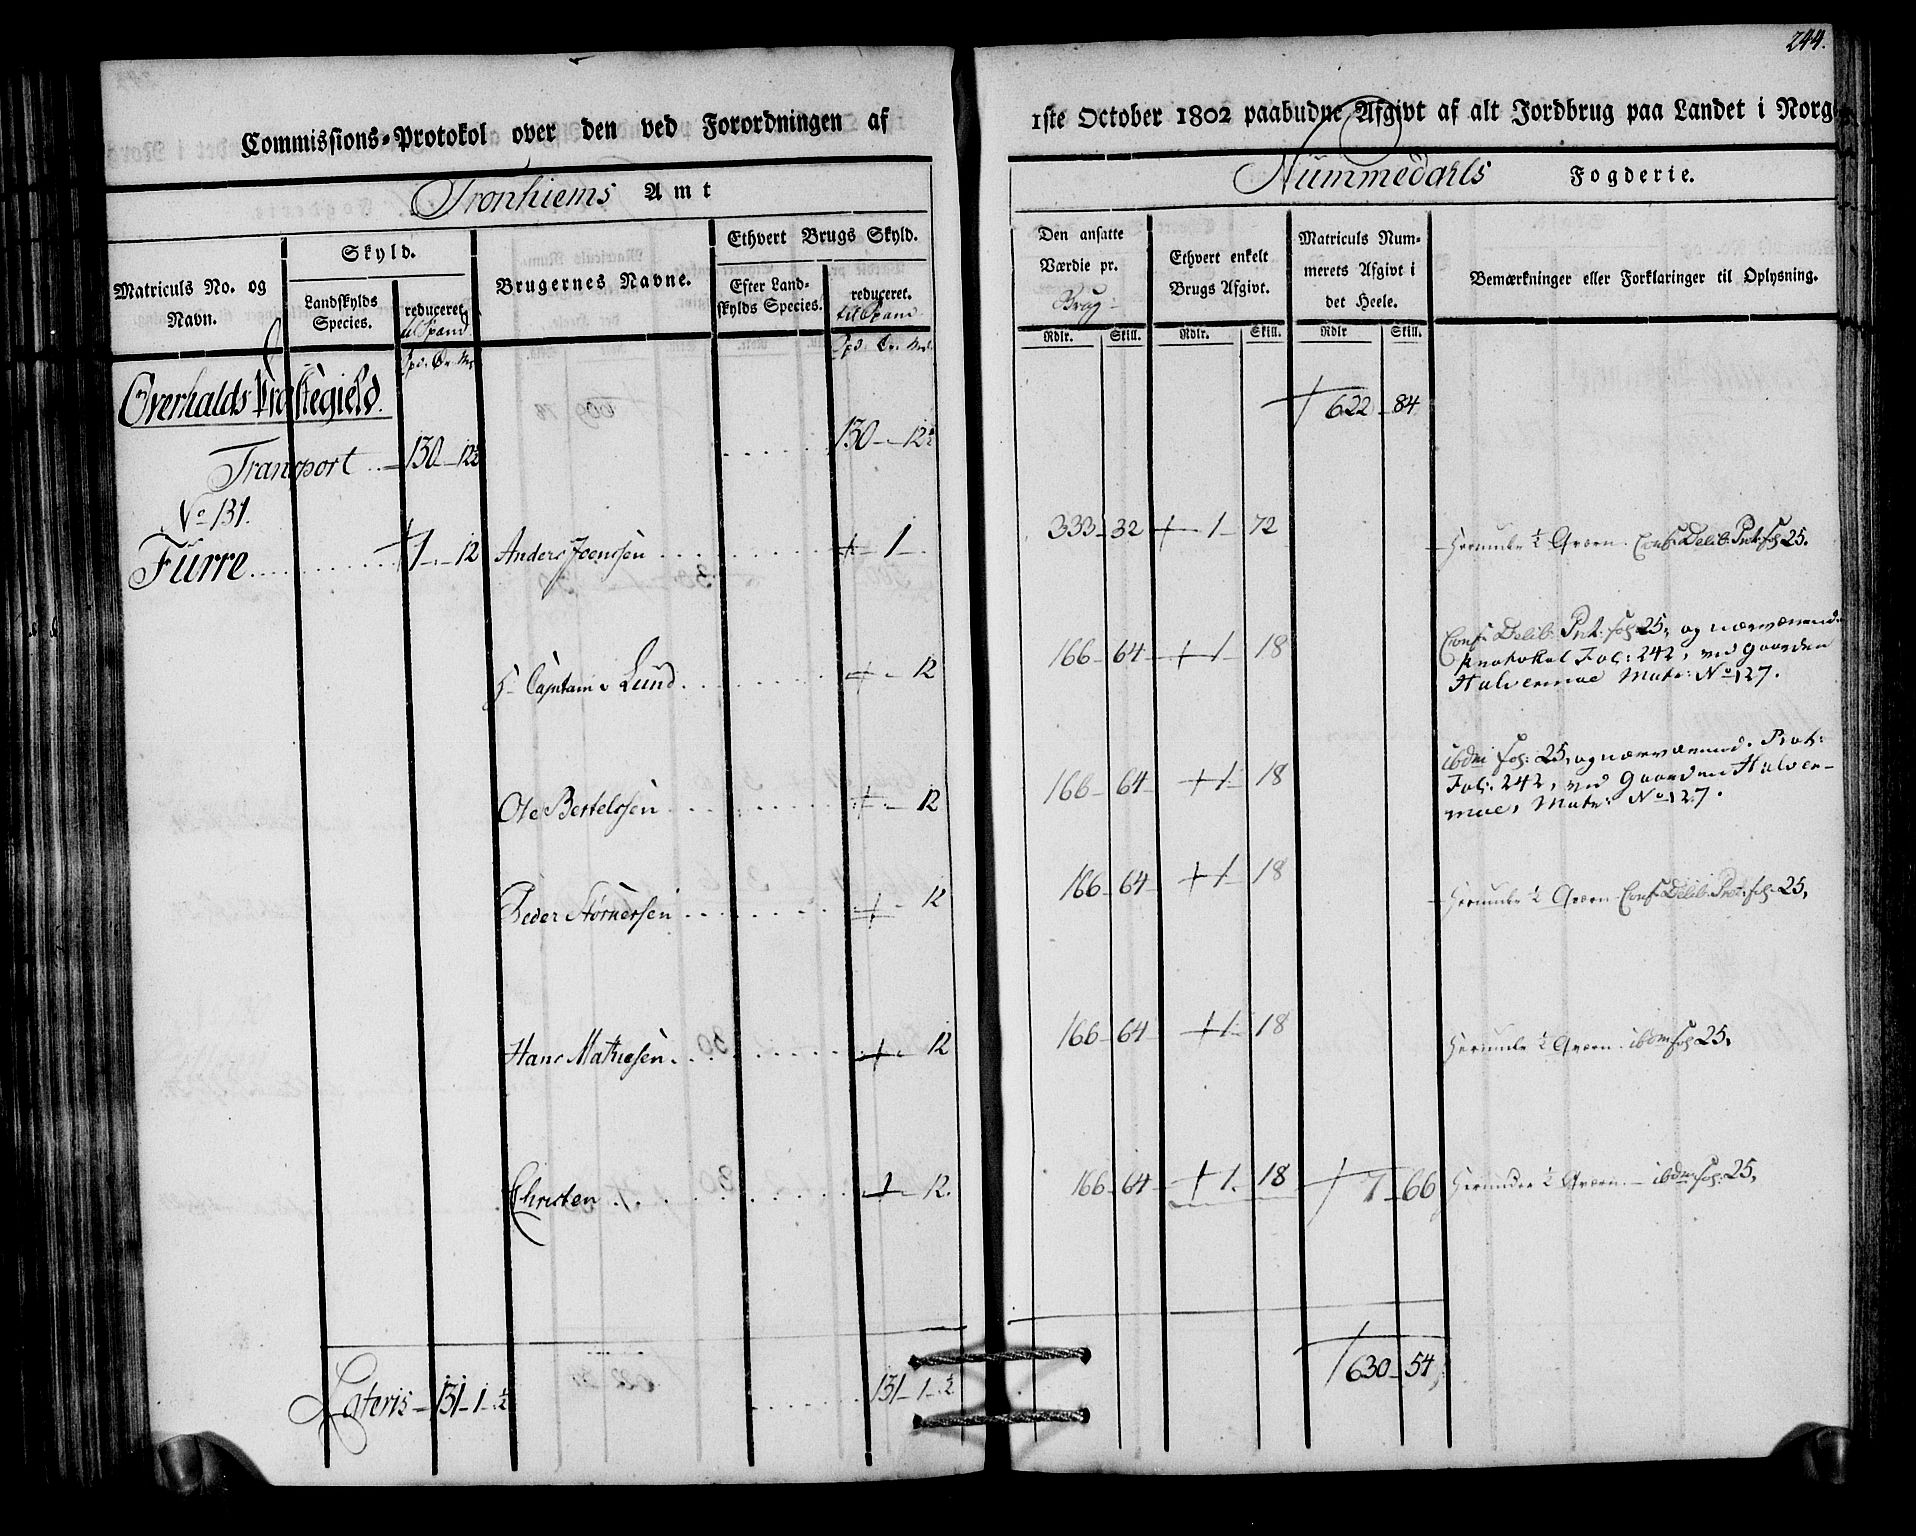 244.
Commissions-Protokol over den ved Forordningen af 1ste October 1802 paabudne Afgivt af alt Jordbrug paa Landet i Norge
Tronhiems Amt
Nummedahls Fogderie.
Matriculs No. og Navn.
Skyld.
Landskylds Species.
reduceret til Spand
Spd. Ør. Mrk.
Brugernes Navne.
Ethvert Brugs Skyld.
Efter Landskylds Species.
reduceret. til Spand
Spd. Ør. Mrk.
Den ansatte Værdie pr. Brug
Rdlr. Skill.
Ethvert enkelt Brugs Afgivt.
Rdlr. Skill.
Matriculs Nummerets Afgivt i det Heele.
Rdlr Skill.
Bemærkninger eller Forklaringer til Oplysning.
Overhalds Præstegield.
Transport 130 - 12½ 130 - 12½ 622 - 84
No 131.
Furre 1 - 12 Anders Joenssen 1 333 - 32 1 - 72 Herunder ½ Qværn. Conf: Delib: Prot: fol 25.
Hr Captain v Lund 12 166 - 64 1 - 18 Conf: Delib: Prot: fol: 25, og nærværende
Protokol Fol: 242, ved Gaarden
Halvermoe Matr: No 127.
Ole Bertelssen 12 166 - 64 1 - 18 ibdm fol: 25, og nærværend. Prot:
Fol: 242, ved Gaarden Halver-
moe, Matr: No 127.
Peder Størkersen 12 166 - 64 1 - 18 Herunder ½ Qværn Conf: Delib: Prot: fol: 25,
Hans Mathiesen 12 166 - 64 1 - 18 Herunder ½ Qværn ibdm fol 25,
Christen 12. 166 - 64 1 - 18 7 - 66 Herunder ½ Qværn - ibdm: fol: 25,
Lateris 131 - 1 - ½ 131 - 1 - ½ 630 - 54